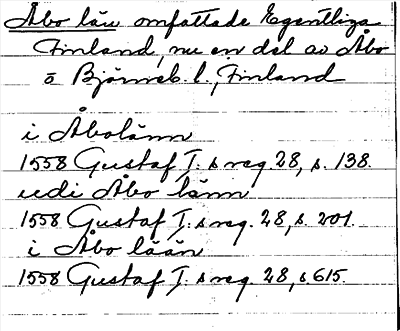 Åbo län omfattade Egentliga
Finland, nu en del av Åbo
o Björneb. l., Finland
i Åbolänn
1558 Gustaf I:s reg. 28, s. 138.
udi Åbo länn
1558 Gustaf I:s reg. 28, s. 201.
i Åbo lään
1558 Gustaf I:s reg. 28, s 615.